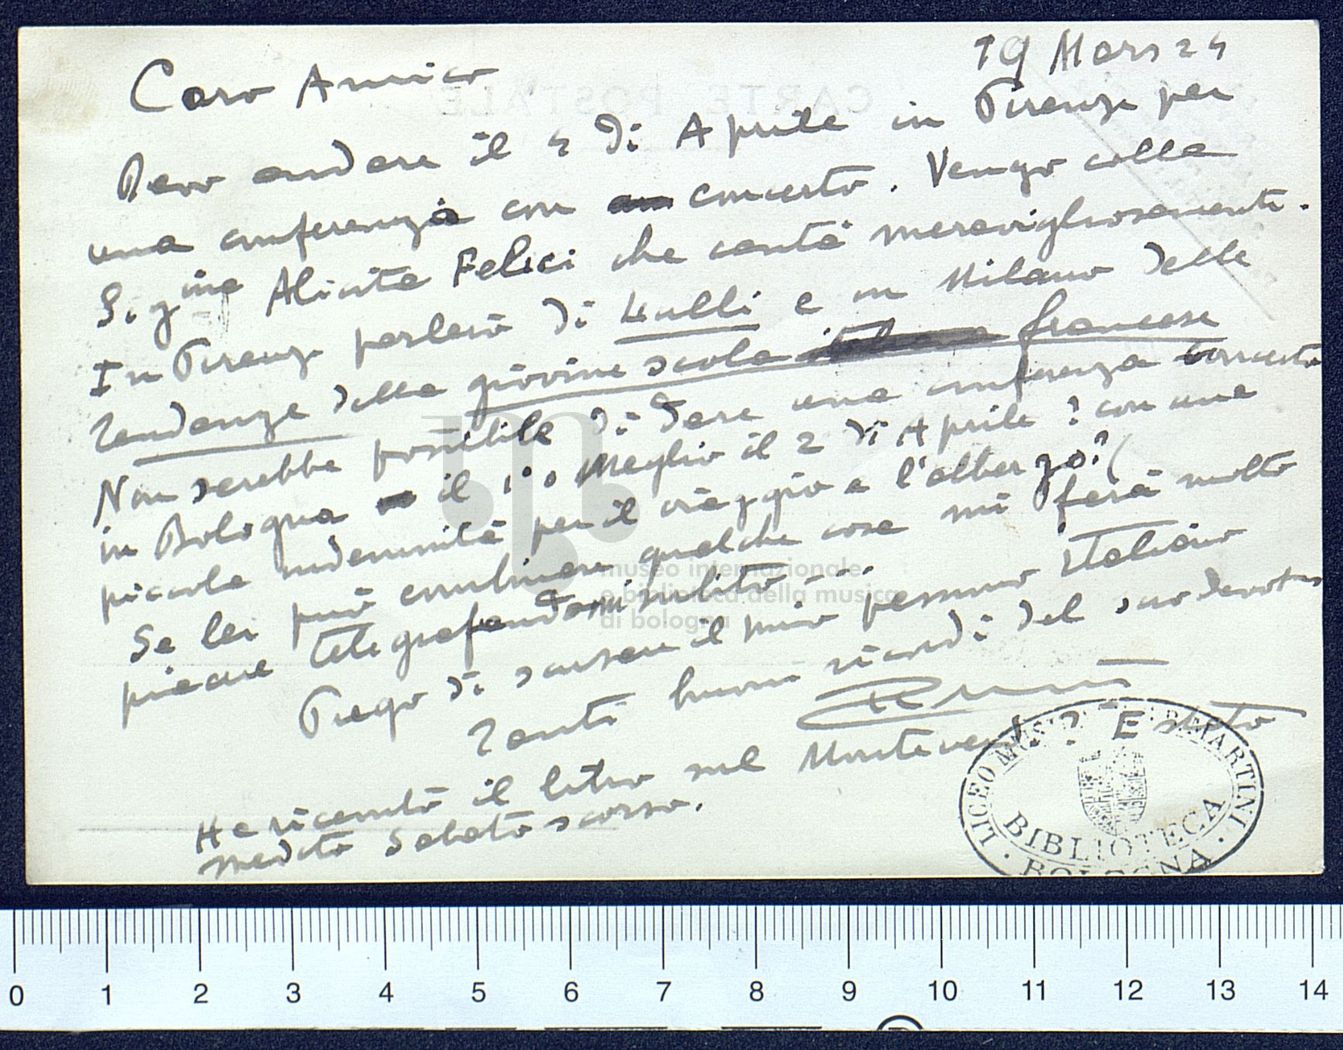 19 Mars 24
Caro Amico
Devo andare il 4 di Aprile in Firenze per
una conferenza con concerto. Vengo colla
S.gina Alicita Felici che canta meravigliosamente.
In Firenze parlerò di Lulli e in Milano delle
Tendanze della giovine scola francese
Non serebbe possibile di dare una conferenza concerto
in Bologna il 1° o meglio il 2 di Aprile? con una
piccola indemnità per il viaggio e l'albergo?
Se lei può combinare qualche cosa mi farà molto
piacere telegrafandomi subito
Prego di scusare il mio pessimo italiano
Tanti buoni ricordi del suo devotus
Ha ricevuto il libro sul Monteverdi? E stato
medito Sabato scorso.
CARTE POSTALE
museo internazionale
e biblioteca della musica
di bologna
LICEO MUSICALE G.B. MARTINI
BIBLIOTECA
· BOLOGNA ·
0 1 2 3 4 5 6 7 8 9 10 11 12 13 14